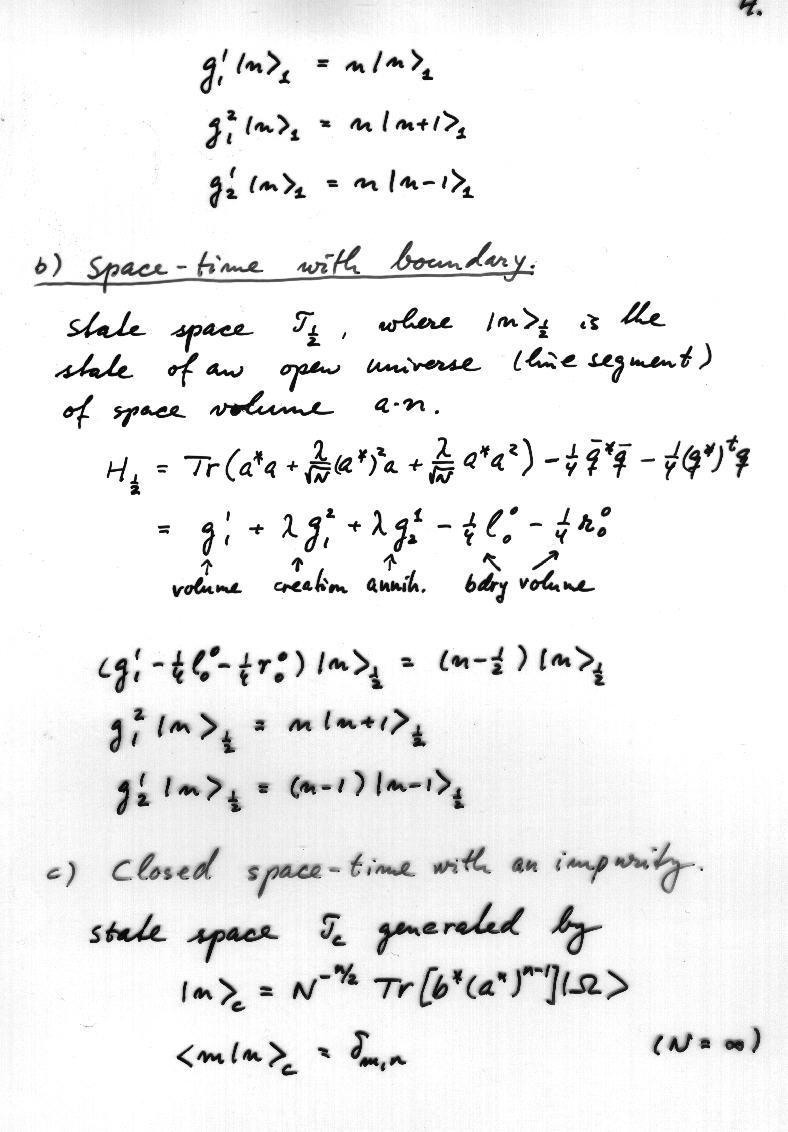 4.
g₁¹ |n>₁ = n |n>₁
g₁² |n>₁ = n |n+1>₁
g₂¹ |n>₁ = n |n-1>₁
b) Space-time with boundary.
State space 𝒯_{1/2}, where |n>_{1/2} is the
state of an open universe (line segment)
of space volume a·n.
H_{1/2} = Tr(a*a + λ/√N (a*)²a + λ/√N a*a²) - ¼ q̄*q̄ - ¼(q*)ᵗq
= g₁¹ + λ g₁² + λ g₂¹ - ¼ l₀⁰ - ¼ r₀⁰
↑ ↑ ↑ ↖ ↗
volume creation annih. bdry volume
(g₁¹ - ¼ l₀⁰ - ¼ r₀⁰) |n>_{1/2} = (n-½) |n>_{1/2}
g₁² |n>_{1/2} = n |n+1>_{1/2}
g₂¹ |n>_{1/2} = (n-1) |n-1>_{1/2}
c) Closed space-time with an impurity.
State space 𝒯_c generated by
|n>_c = N^{-n/2} Tr[b*(a*)^{n-1}]|Ω>
<m|n>_c = δ_{m,n} (N = ∞)